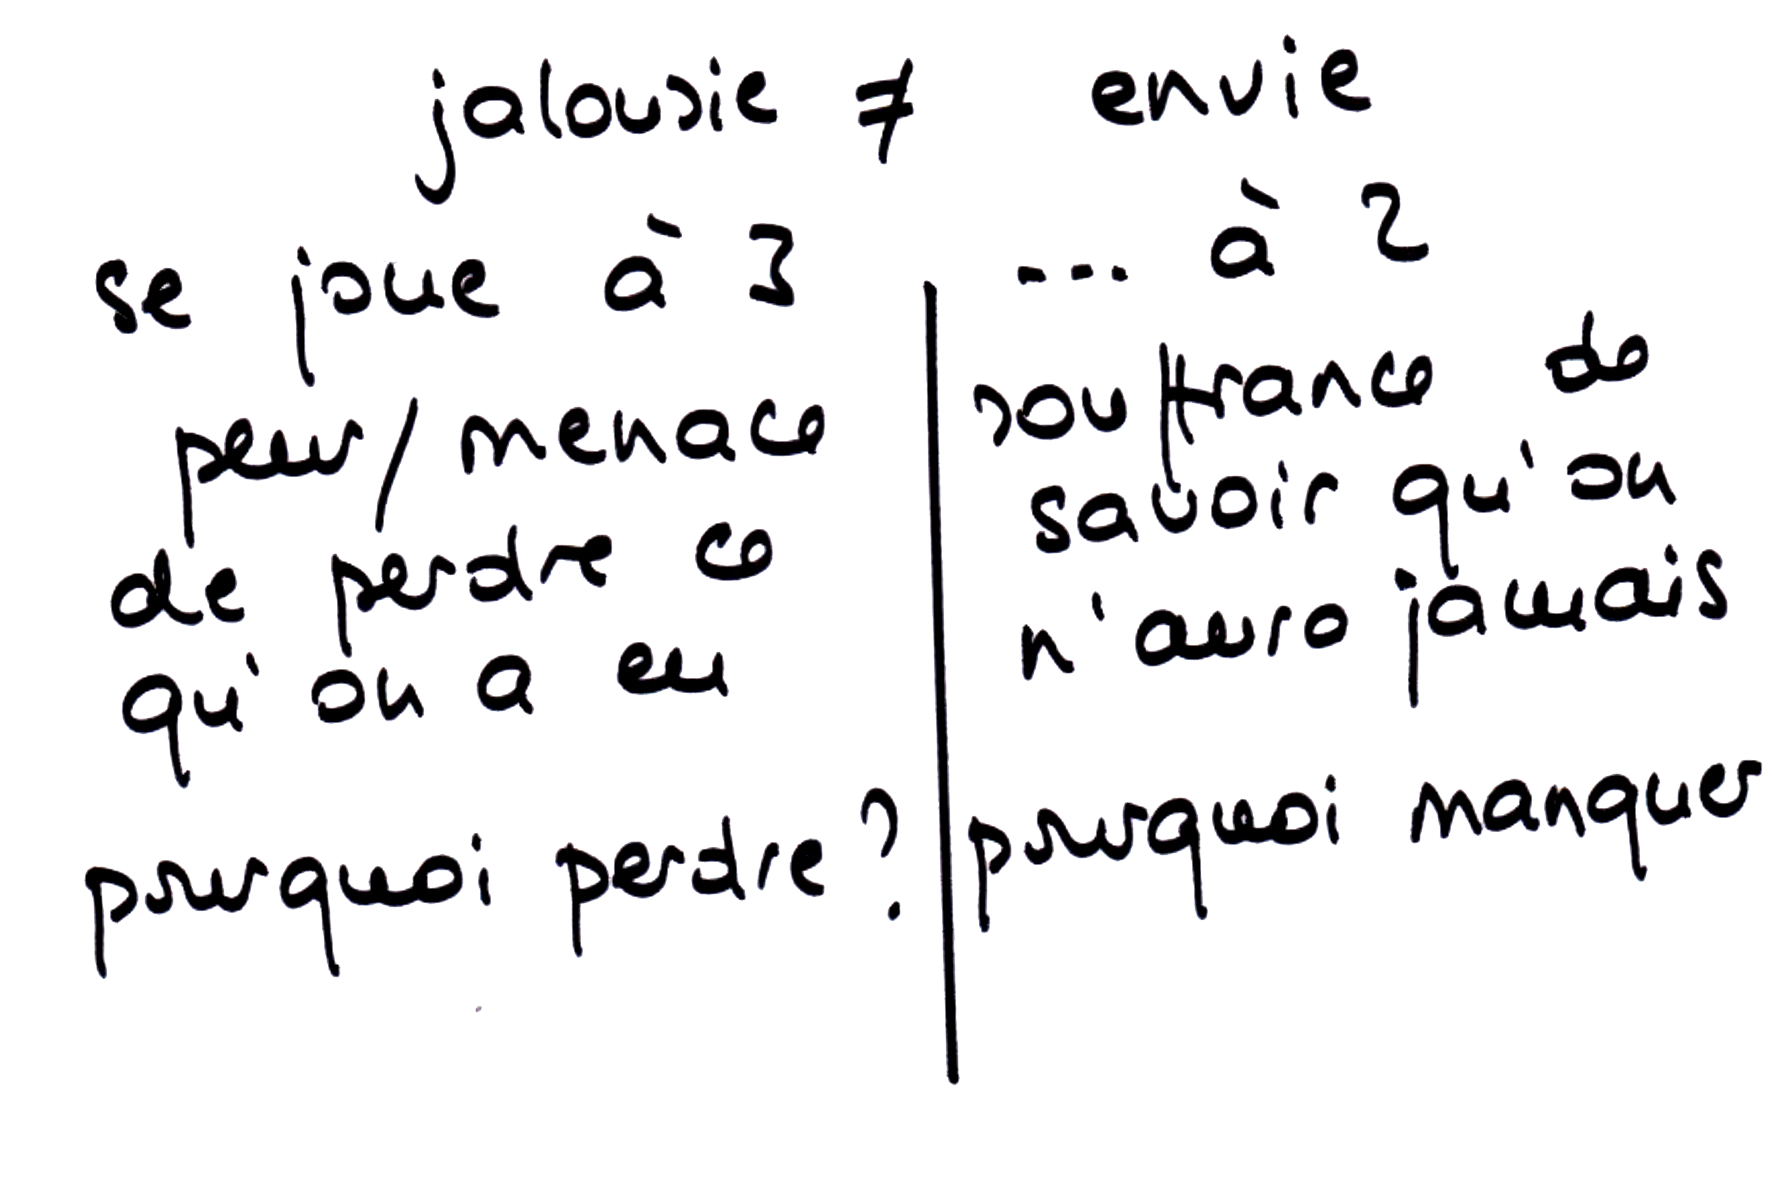 jalousie ≠ envie
se joue à 3
peur/menace
de perdre ce
qu'on a eu
pourquoi perdre ?
... à 2
souffrance de
savoir qu'on
n'aura jamais
pourquoi manquer